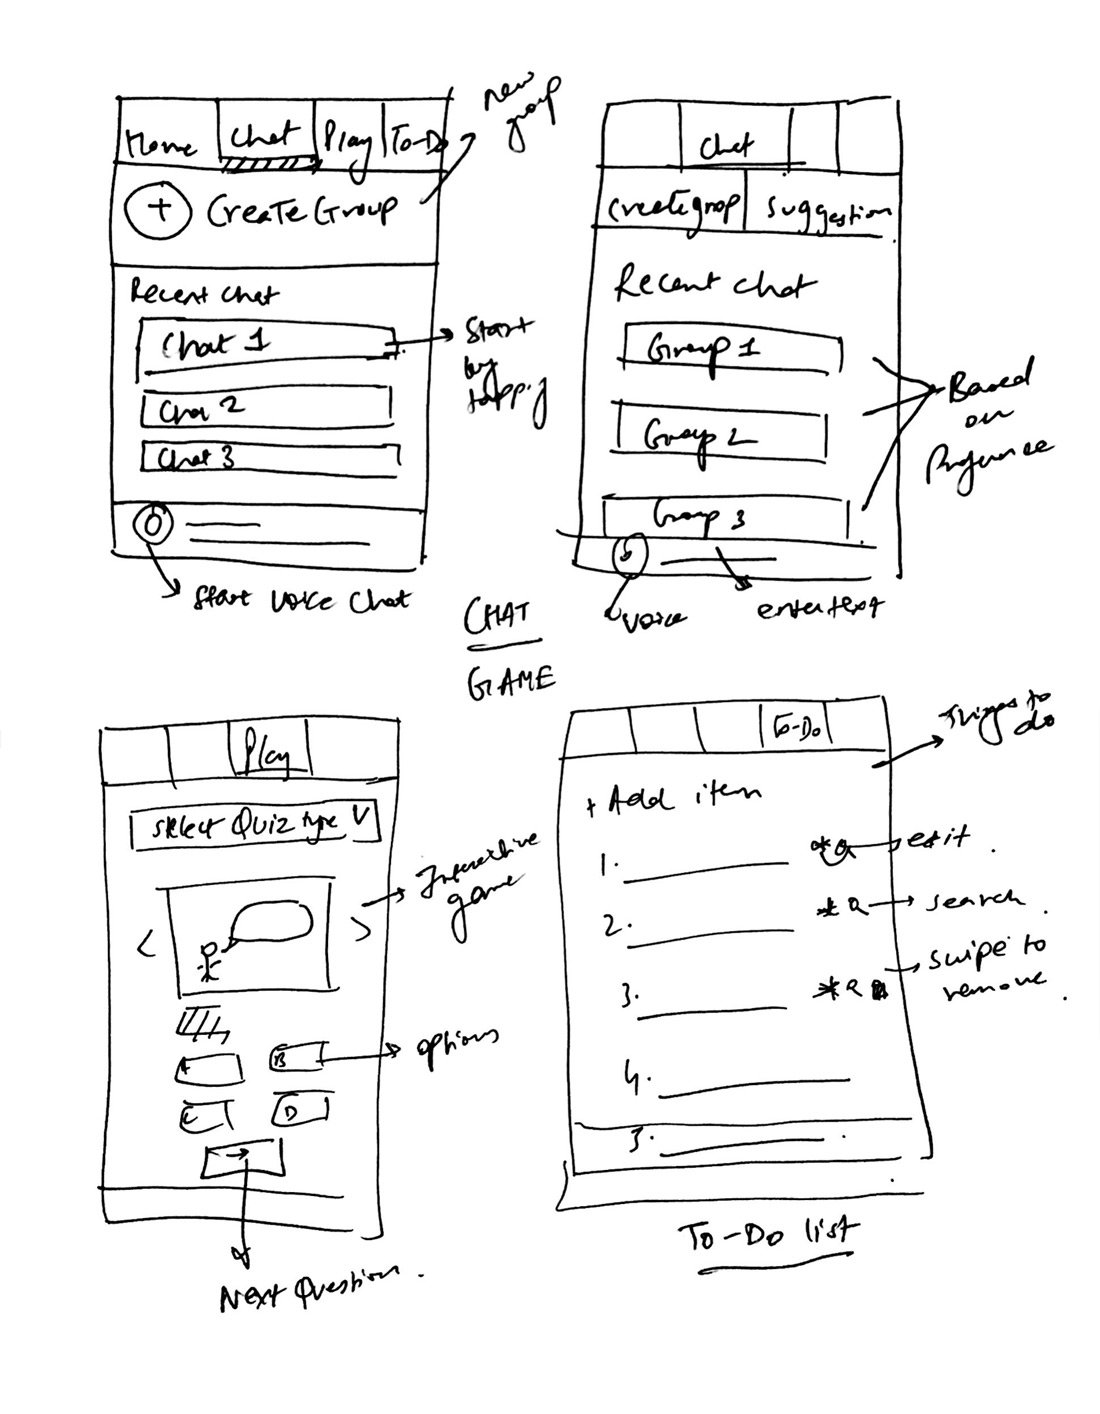 Home Chat Play To-Do
new
group
+ Create Group
Recent chat
Chat 1
Start
by
tapping
Chat 3
Start Voice Chat
Chat
Suggestion
Recent chat
Group 1
Group 2
Group 3
Based
on
Voice
enter text
CHAT
GAME
Play
Select Quiz type V
Interactive
game
< >
A B
options
C D
→
Next Question.
To-Do
Things to
do
+ Add item
1.
edit
2.
search
3.
swipe to
remove
4.
To-Do list